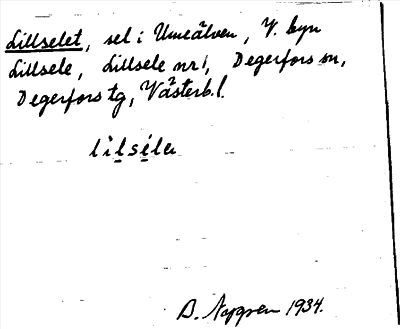 Lillselet, sel i Umeälven, V. byn
Lillsele, Lillsele nr 1, Degerfors sn,
Degerfors tg, Västerb. l.
lilsela
B. Nygren 1934.